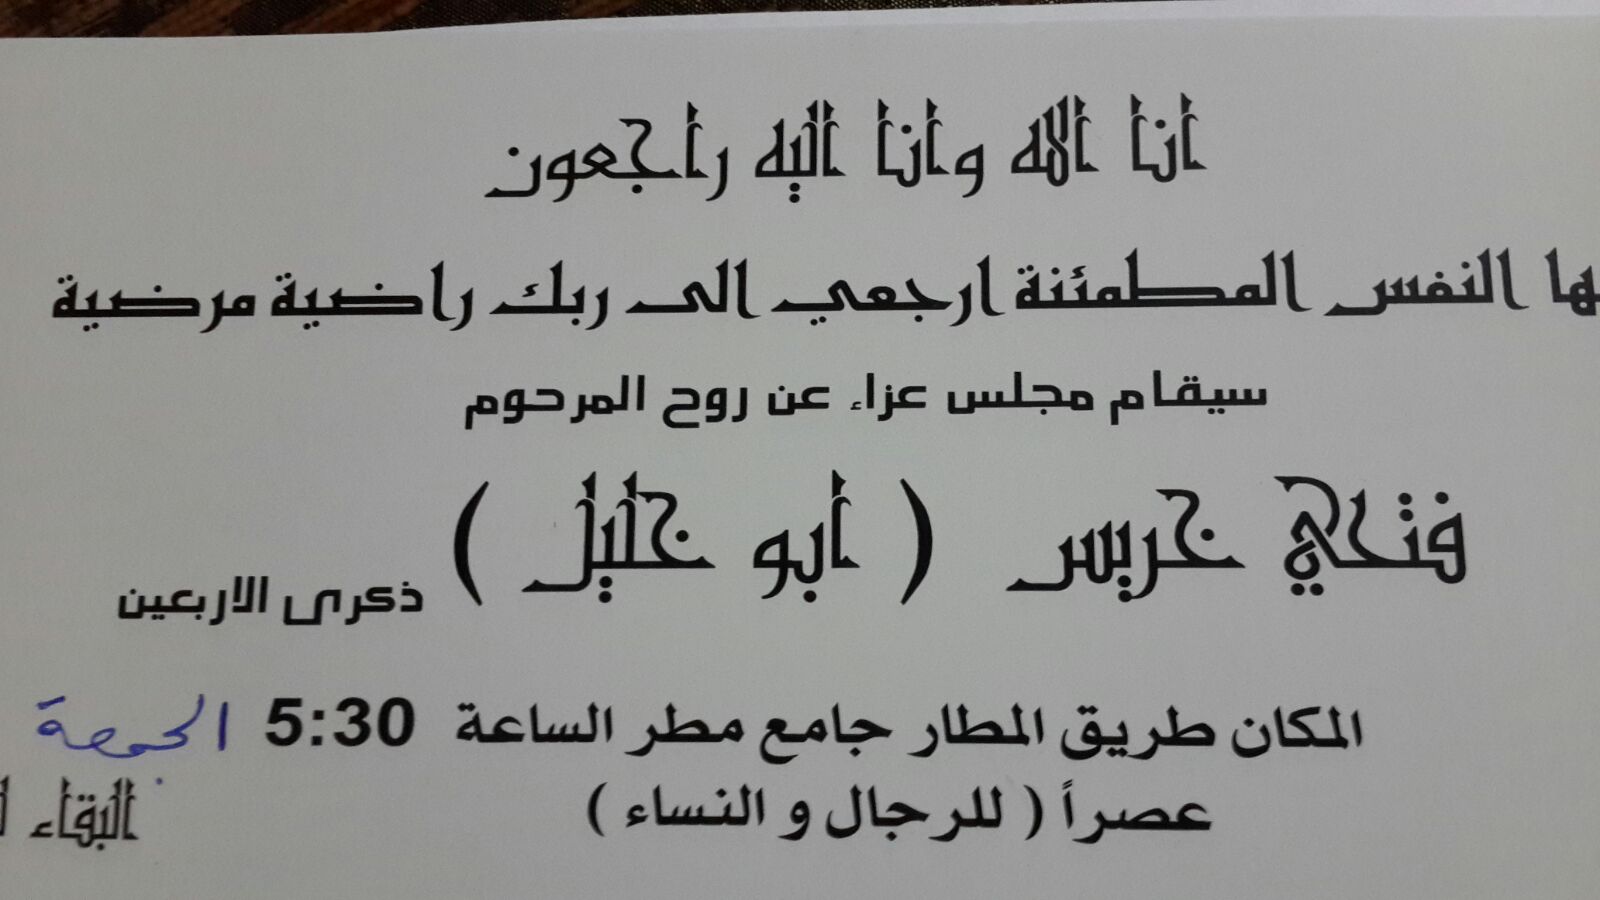 انا لله وانا اليه راجعون
يها النفس المطمئنة ارجعي الى ربك راضية مرضية
سيقام مجلس عزاء عن روح المرحوم
فتحي خريس ( أبو خليل ) ذكرى الاربعين
المكان طريق المطار جامع مطر الساعة 5:30 الجمعة
عصراً ( للرجال و النساء )
البقاء